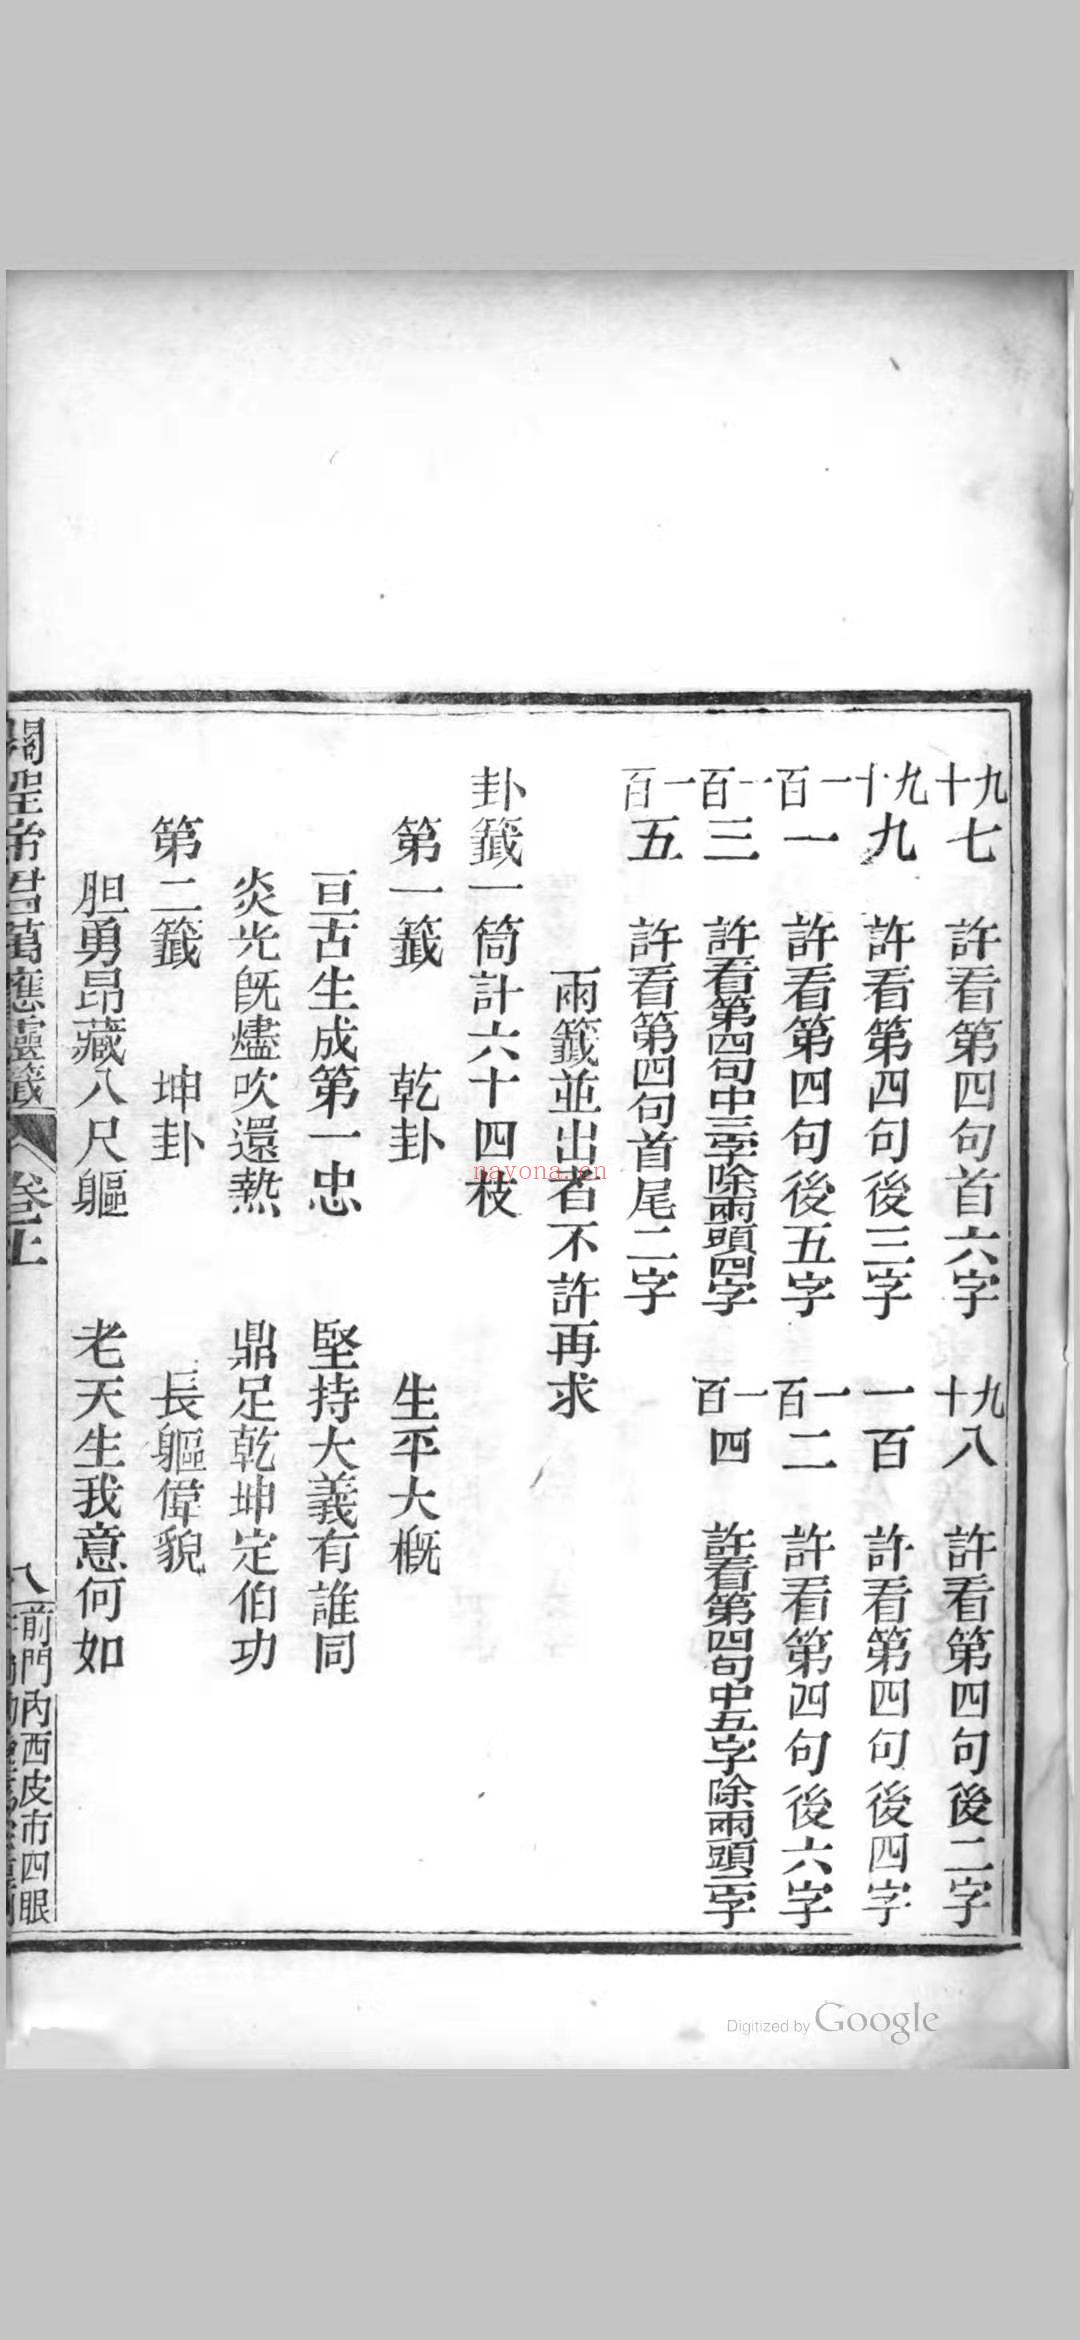 九十七　許看第四句首六字　九十八　許看第四句後二字
九十九　許看第四句後三字　一百　許看第四句後四字
一百一　許看第四句後五字　一百二　許看第四句後六字
一百三　許看第四句中三字除兩頭四字　一百四　許看第四句中五字除兩頭二字
一百五　許看第四句首尾二字
兩籤並出者不許再求
卦籤一筒計六十四枝
第一籤　乾卦　生平大概
亘古生成第一忠　堅持大義有誰同
炎光既燼吹還熱　鼎足乾坤定伯功
第二籤　坤卦　長軀偉貌
胆勇昂藏八尺軀　老天生我意何如
關聖帝君萬應靈籤　卷上　八　前門內西皮市四眼
nayona.cn
Digitized by Google